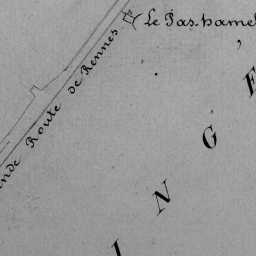 Le Pas hamel
nde Route de Rennes
I N G E